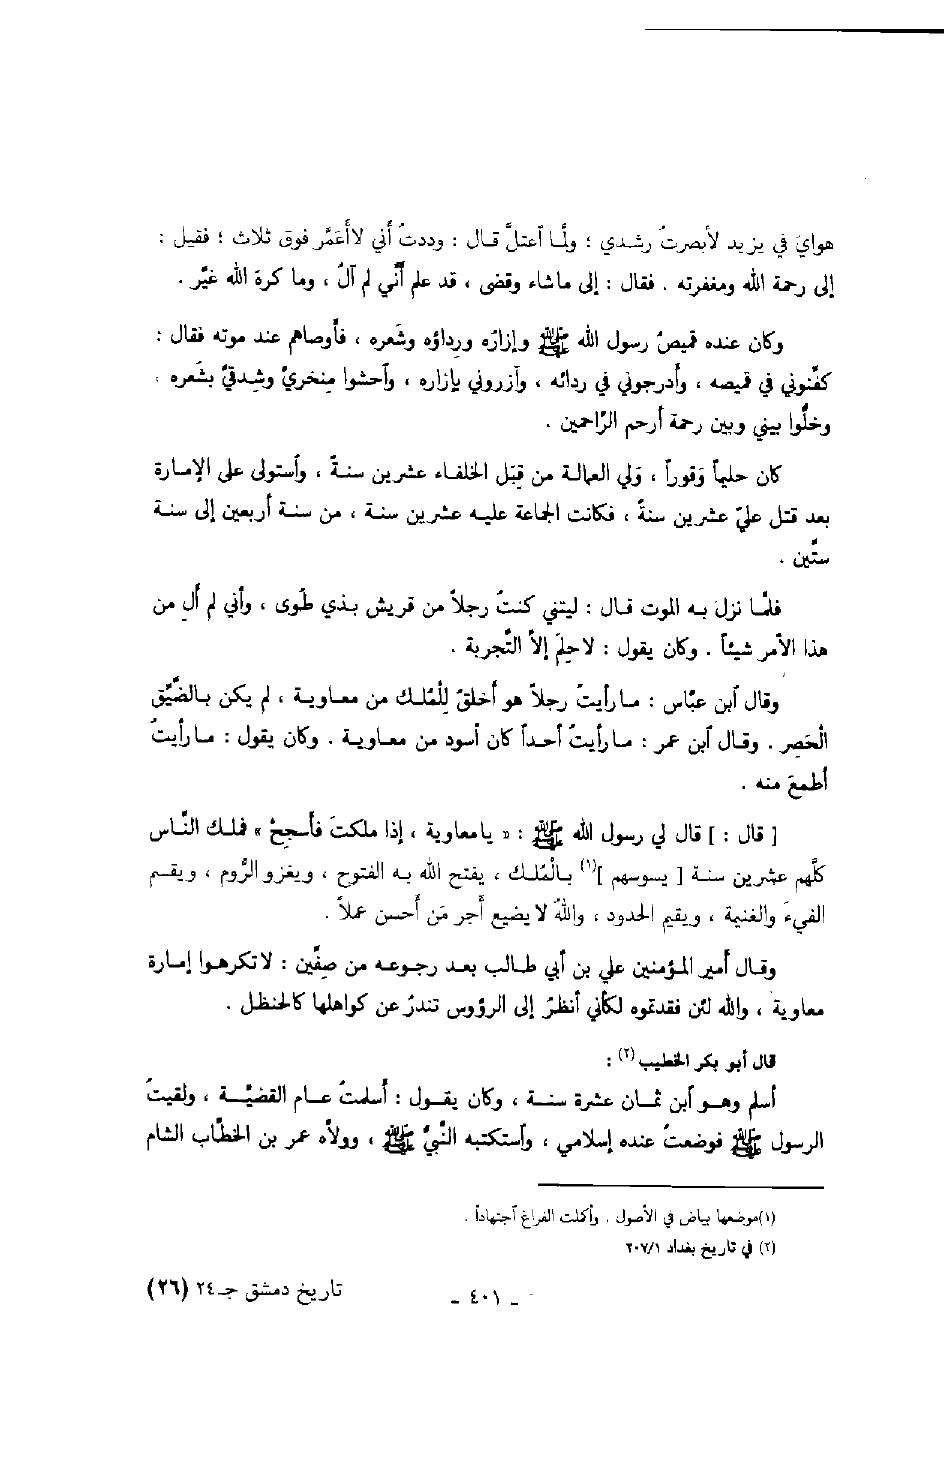 هوايَ في يزيد لأبصرتُ رشدي ؛ ولمَّا اَعتلَّ قال : وددتُ أني لا أُعَمَّر فوق ثلاث ؛ فقيل :
إلى رحمة الله ومغفرته . فقال : إلى ما شاء وقضى ، قد علم أنّي لم آلُ ، وما كرهَ الله غيَّر .
وكان عنده قميصُ رسول الله ﷺ وإزارُه ورداؤه وشَعره ، فأوصاهم عند موته فقال :
كفّنوني في قميصه ، وأدرجوني في ردائه ، وآزروني بإزاره ، واَحشوا مِنخريَّ وشِدقيَّ بشَعره ،
وخلُّوا بيني وبين رحمة أرحم الرّاحمين .
كان حليماً وَقوراً ، وَلي العمالة من قِبَل الخلفاء عشرين سنةً ، واَستولى على الإمارة
بعد قتل عليّ عشرين سنةً ، فكانت الجماعة عليه عشرين سنة ، من سنة أربعين إلى سنة
ستّين .
فلمّا نزل به الموت قال : ليتني كنتُ رجلاً من قريش بذي طُوى ، وأني لم أَلِ من
هذا الأمر شيئاً . وكان يقول : لا حِلمَ إلاّ التَّجربة .
وقال اَبن عبّاس : ما رأيتُ رجلاً هو أخلقُ لِلْمُلك من معاوية ، لم يكن بالضَّيِّق
الْحَصِر . وقال اَبن عمر : ما رأيتُ أحداً كان أسود من معاوية . وكان يقول : ما رأيتُ
أطمعَ منه .
[ قال : ] قال لي رسول الله ﷺ : « يا معاوية ، إذا ملكتَ فأسجِحْ » فملك النَّاس
كلَّهم عشرين سنة [ يسوسهم ]⁽١⁾ بالْمُلك ، يفتح الله به الفتوح ، ويغزو الرُّوم ، ويقسم
الفيءَ والغنيمة ، ويقيم الحدود ، واللهُ لا يضيع أَجر مَن أَحسن عملاً .
وقال أمير المؤمنين علي بن أبي طالب بعد رجوعه من صِفّين : لا تكرهوا إمارة
معاوية ، والله لئن فقدتموه لكأني أنظرُ إلى الرؤوس تندرُ عن كواهلها كالحنظل .
قال أبو بكر الخطيب⁽٢⁾ :
أسلم وهو اَبن ثمان عشرة سنة ، وكان يقول : أسلمتُ عام القضيّة ، ولقيتُ
الرسول ﷺ فوضعتُ عنده إسلامي ، واَستكتبه النَّبيُّ ﷺ ، وولاّه عمر بن الخطّاب الشام
(١) موضعها بياض في الأصول . وأكملت الفراغ اَجتهاداً .
(٢) في تاريخ بغداد ٢٠٧/١
- ٤٠١ -
تاريخ دمشق جـ ٢٤ (٢٦)